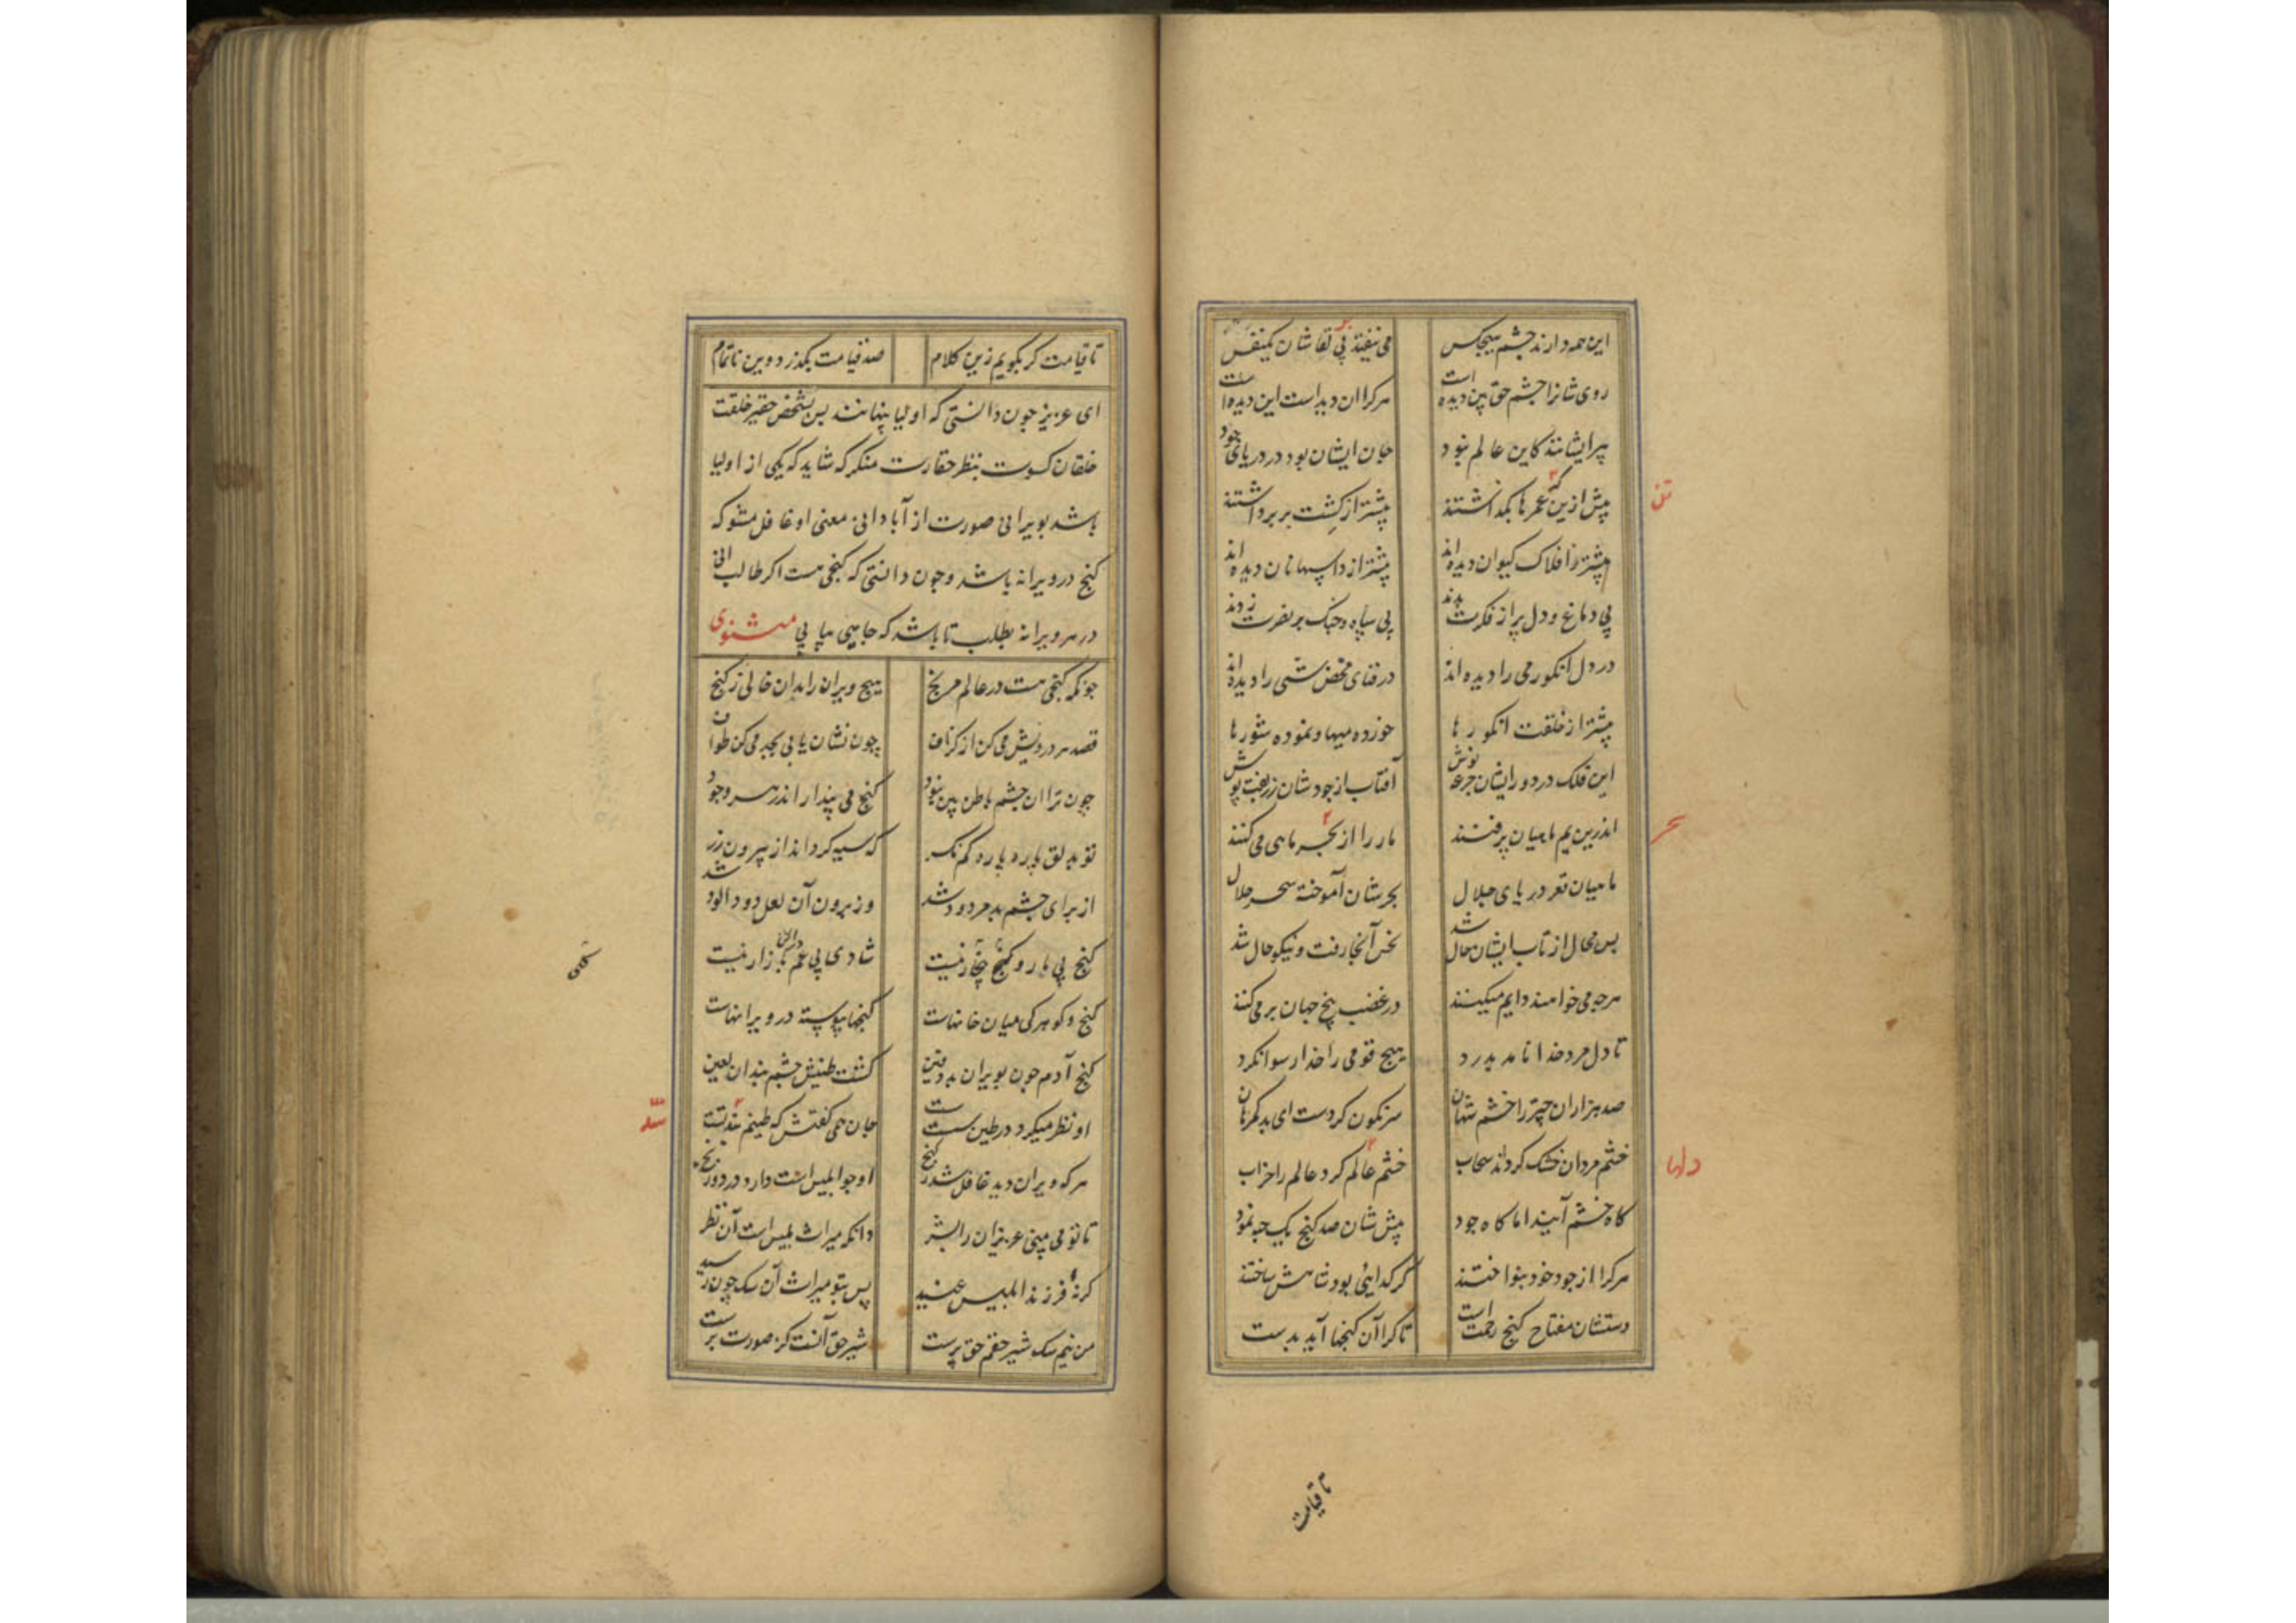 این همه دارند چشم هیچکس می نیفتد بی لقاشان یکنفس
روی شانرا چشم حق بین دیده است هر کرا ان دید است این دیده است
پیر ایشانند کاین عالم نبود جان ایشان بود در دریای جود
پیش ازین که عمرها بگذاشتند پیشتر از کشت بر برداشتند
پیشتر ز افلاک کیوان دیده اند پیشتر از دانها نان دیده اند
بی دماغ و دل پر از فکرت بدند بی سپاه و جنک بر نصرت زدند
در دل انگور می را دیده اند در فنای محض شی را دیده اند
پیشتر از خلقت انگورها خورده میها و نموده شورها
این فلک در دور ایشان جرعه نوش آفتاب از جودشان زربفت پوش
اندرین یم ماهیان پرفنند مار را از بحر ماهی می کنند
ماهیان قعر دریای جلال بحرشان آموخته سحر حلال
بس محال از تاب ایشان حال شد نحس آنجا رفت و نیکو حال شد
هرچه می خواهند دایم میکنند در غضب بیخ جهان بر می کنند
تا دل مرد خدا نامد بدرد هیچ قومی را خدا رسوا نکرد
صد هزاران چتر را خشم شهان سرنگون کردست ای بدگمرهان
خشم مردان خشک گرداند سحاب خشم عالم کرد عالم را خراب
گاه خشم آیند اما گاه جود پیش شان صد گنج یک حبه نمود
هر کرا از جود خود بنواختند گر گدائی بود شاهش ساختند
دستشان مفتاح گنج رحمت است تا کرا آن گنجها آید بدست
تن
بحر
دلها
تا قیامت
تا قیامت گر بگویم زین کلام صد قیامت بگذرد وین ناتمام
ای عزیز چون دانستی که اولیا پنهانند بس بشخص حقیر خلقت
خلقان کسوت بنظر حقارت منگر که شاید که یکی از اولیا
باشد بویرانی صورت از آبادانی معنی او غافل مشو که
گنج در ویرانه باشد و چون دانستی که گنجی هست اگر طالب آنی
در هر ویرانه بطلب تا باشد که جایی بیابی مثنوی
چونکه گنجی هست در عالم مرنج هیچ ویران را مدان خالی ز گنج
قصد هر درویش می کن از گزاف چون نشان یابی بجد می کن طواف
چون ترا ان چشم باطن بین نبود گنج می پندار اندر هر وجود
تو بدلق پاره پاره کم نگر که سیه کردانداز بیرون زر
از برای چشم بد مردود شد وز برون آن لعل دود آلود شد
گنج بی مار و گل بی خار نیست شادی بی غم درین بازار نیست
گنج و گوهر کی میان خانهاست گنجها پیوسته در ویرانهاست
گنج آدم چون بویران بد دفین گشت طینش چشم بند ان لعین
او نظر میکرد در طین سست سست جان همی گفتش که طینم بند تست
هر که ویران دید غافل شد ز گنج او چو ابلیس است دارد درد و رنج
تا تو می بینی عزیزان را بشر دانکه میراث بلیس است آن نظر
گر نه فرزند ابلیس عنید پس بتو میراث آن سگ چون رسید
من نیم سگ شیر حقم حق پرست شیر حق آنست کز صورت برست